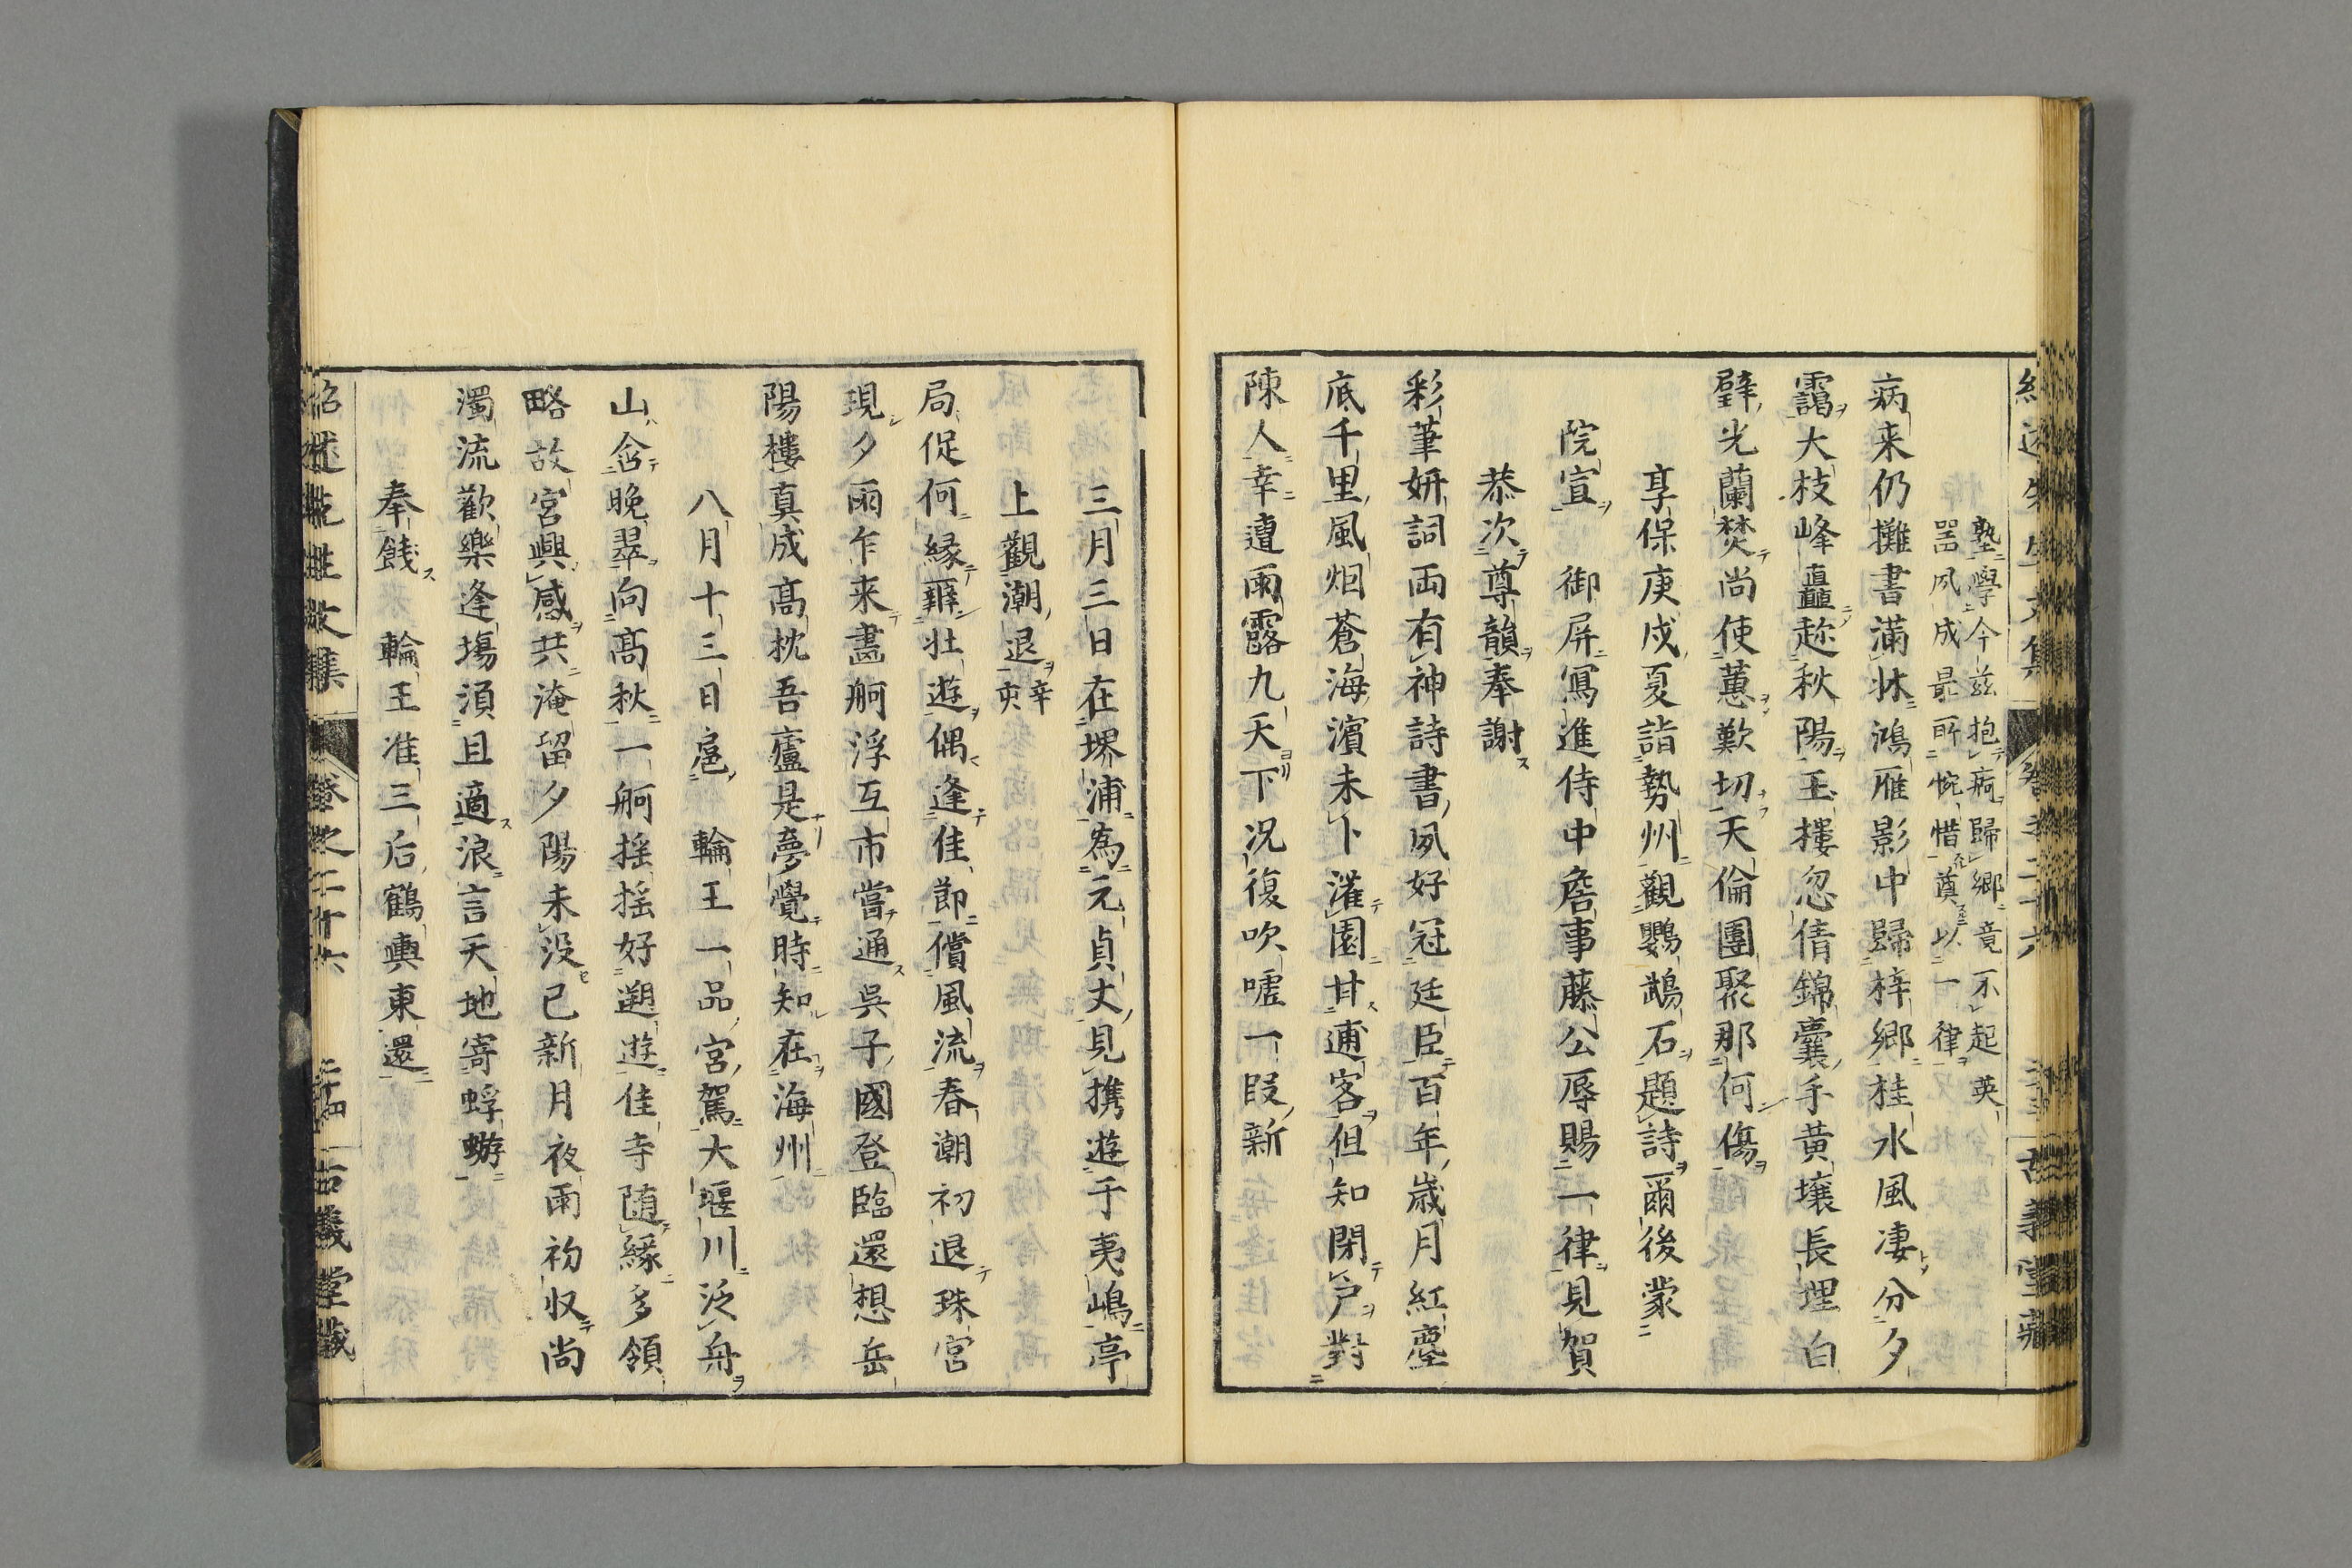 塾學今茲抱病歸鄉竟不起英
器夙成最所惋惜奠以一律
病来仍攤書滿牀鴻雁影中歸梓鄉桂水風凄分夕
靄大枝峰矗趂秋陽玉樓忽倩錦囊手黃壤長埋白
璧光蘭焚尚使蕙歎切天倫團聚那何傷
享保庚戌夏詣勢州觀鸚鵡石題詩爾後蒙
院宣 御屏寫進侍中詹事藤公辱賜一律見賀
恭次尊韻奉謝
彩筆妍詞両有神詩書夙好冠廷臣百年歲月紅塵
底千里風烟蒼海濱未卜灌園甘逋客但知閉戶對
陳人幸遭雨露九天下况復吹噓一段新
三月三日在堺浦為元貞丈見携遊于夷嶋亭
上觀潮退 辛亥
局促何緣辦壮遊偶逢佳節償風流春潮初退珠宮
現夕雨乍来畫舸浮互市當通吳子國登臨還想岳
陽樓真成高枕吾廬是夢覺時知在海州
八月十三日扈 輪王一品宮駕大堰川泛舟
山含晚翠向高秋一舸摇摇好遡遊佳寺随緣多領
略故宮興感共淹留夕陽未没已新月夜雨初収尚
濁流歡樂逢塲須且適浪言天地寄蜉蝣
奉餞 輪王准三后鶴輿東還
紹述先生文集 卷之二十六 二十四 古義堂藏